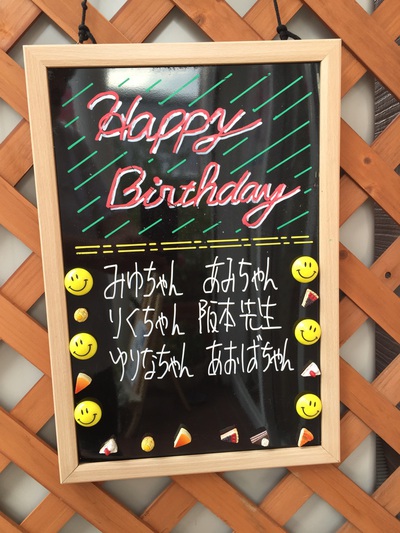 Happy
Birthday
みゆちゃん あみちゃん
りくちゃん 阪本先生
ゆりなちゃん あおばちゃん